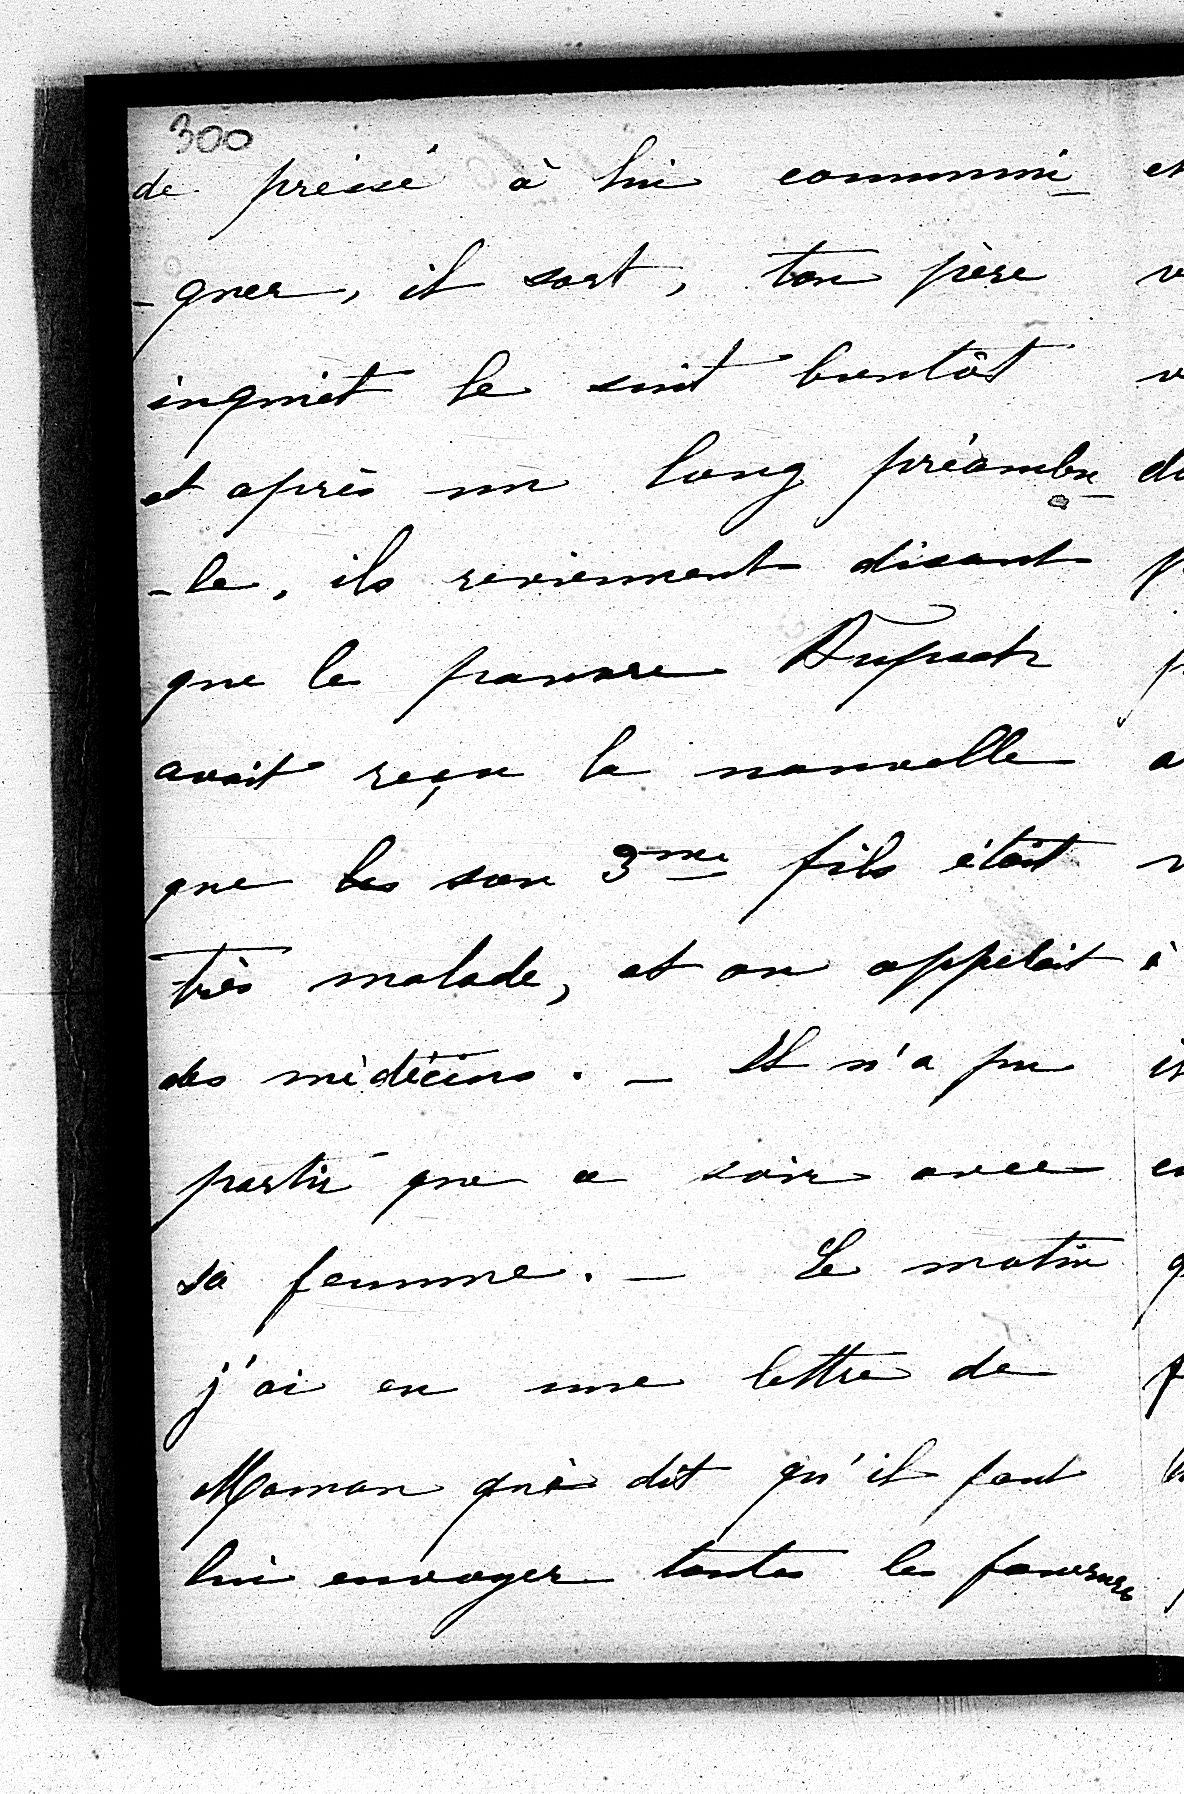 300
de pressé à lui communi-
-quer, il sort, ton père
inquiet le suit bientôt
et après un long préambu-
-le, ils reviennent disant
que le pauvre
avait reçu la nouvelle
que les son 3me fils était
très malade, et on appelait
des médécins. - Il n'a pu
partir que ce soir avec
sa femme. - Le matin
j'ai eu une lettre de
Maman qui dit qu'il faut
lui envoyer toutes les fourrures